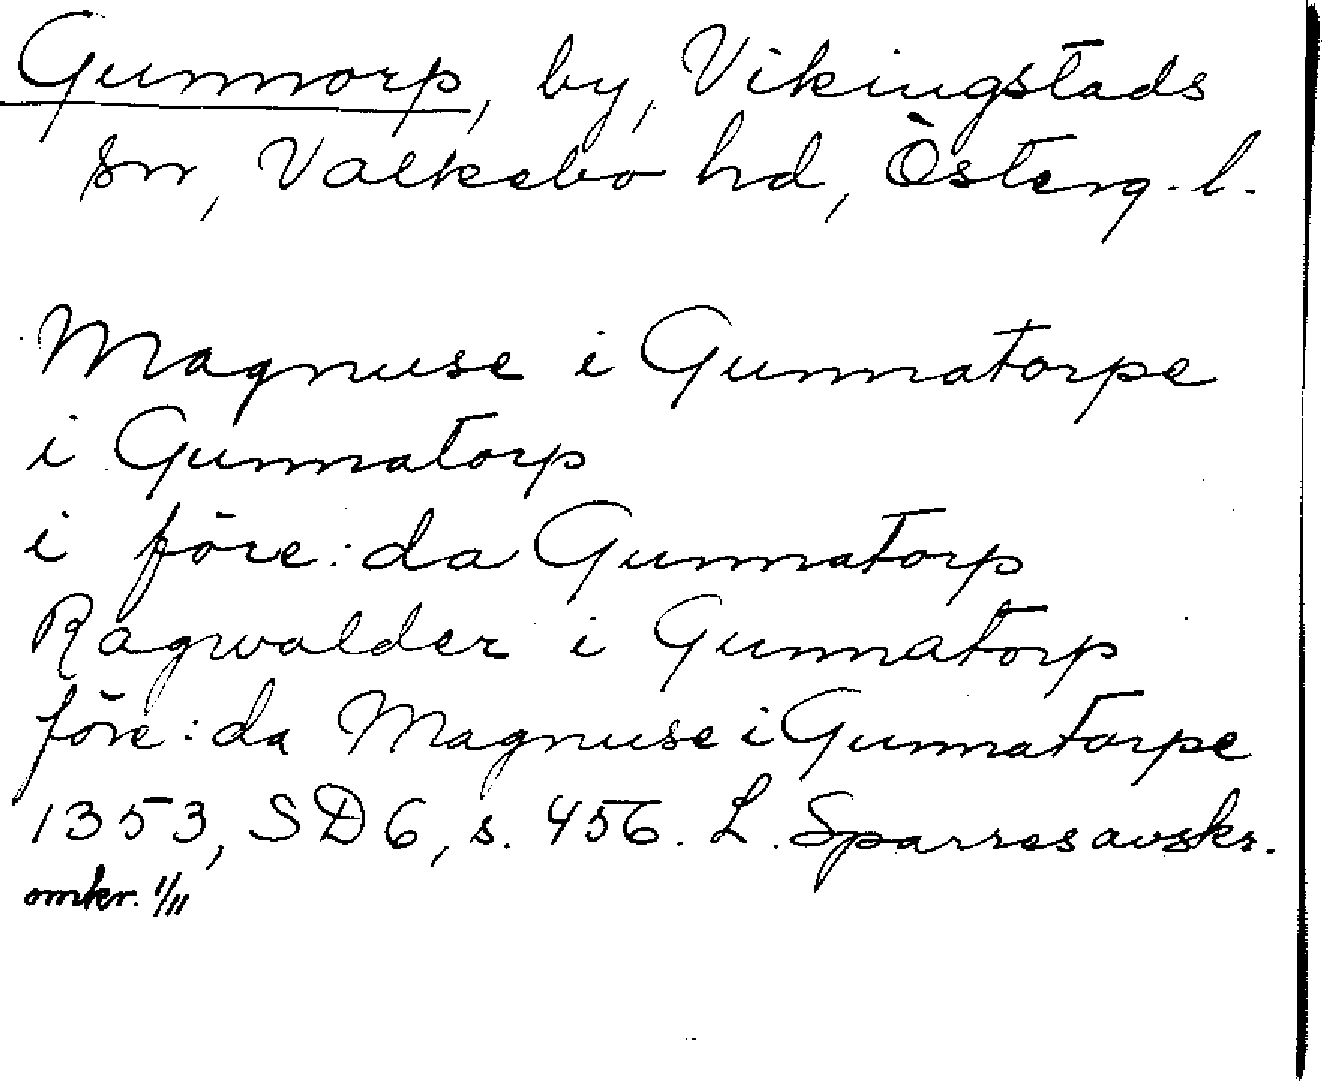 Gunnorp, by, Vikingstads
sn, Valkebo hd, Österg. l.
Magnuse i Gunnatorpe
i Gunnatorp
i före:da Gunnatorp
Ragwalder i Gunnatorp
före:da Magnuse i Gunnatorpe
1353, SD 6, s. 456. L. Sparres avskr.
omkr. 1/11